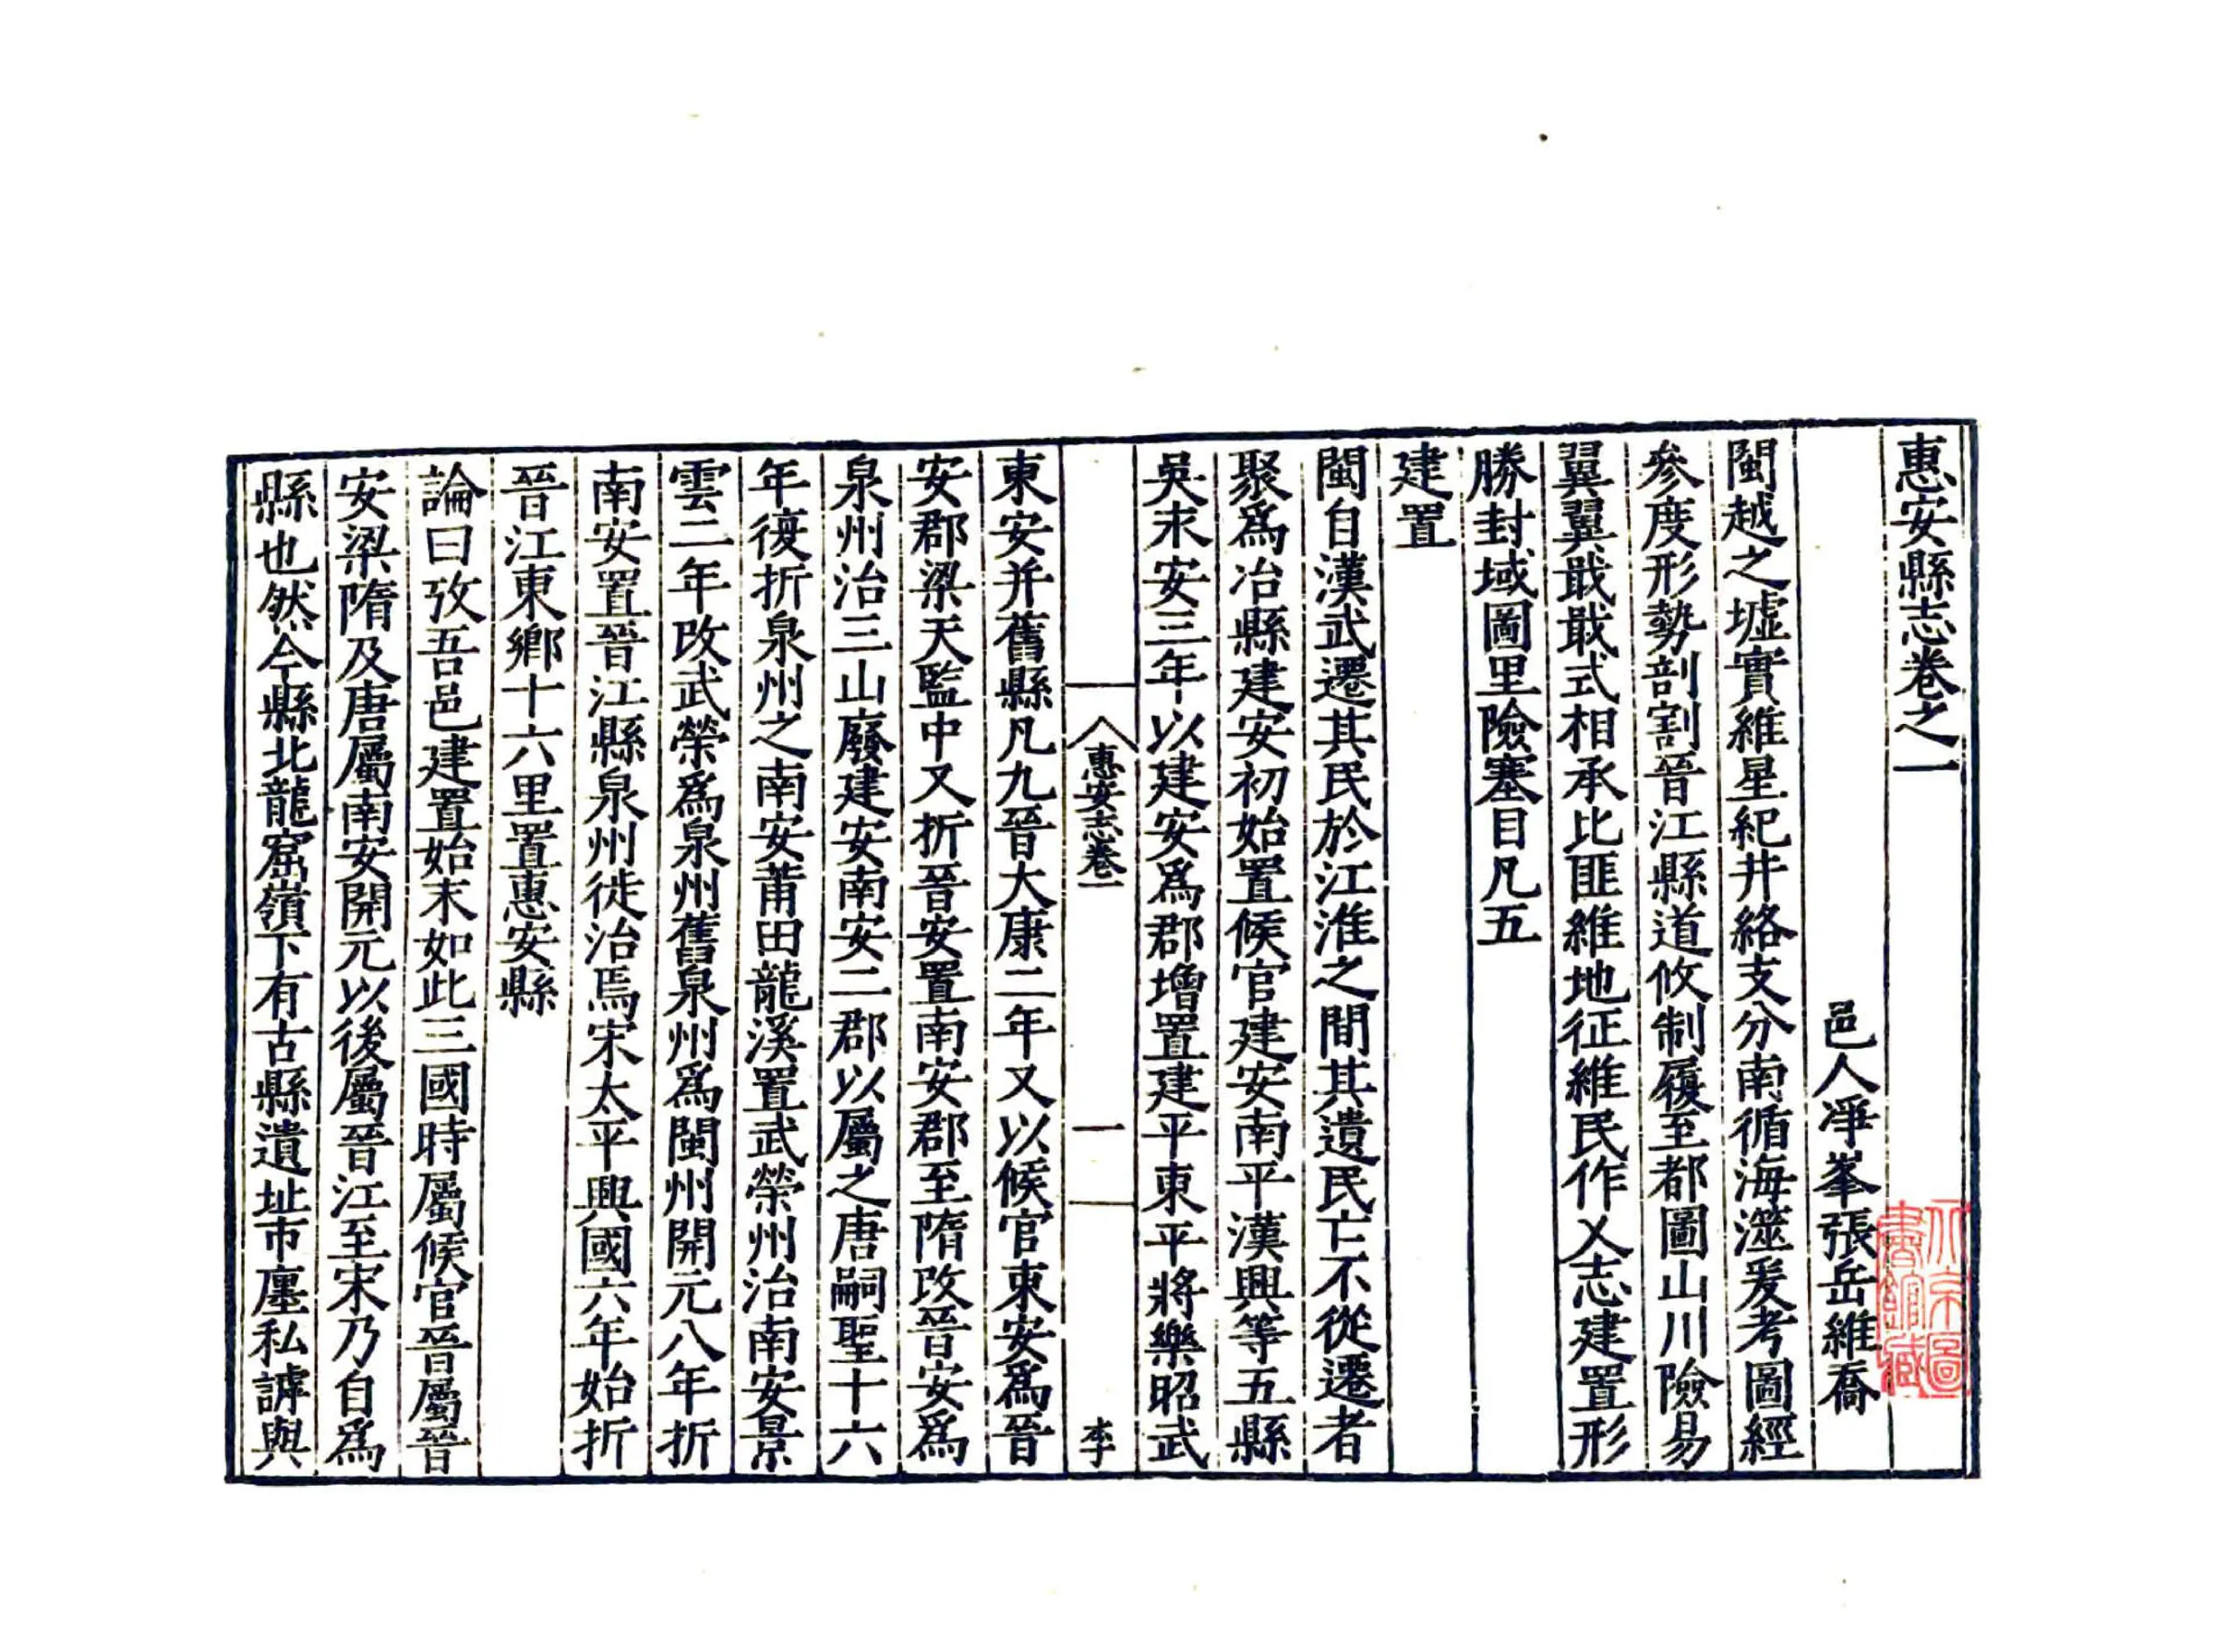 惠安縣志卷之一
邑人淨峯張岳維喬
閩越之墟實維星紀井絡支分南循海澨爰考圖經
參度形勢剖割晉江縣道攸制履至都圖山川險易
翼翼戢戢式相承比匪維地征維民作乂志建置形
勝封域圖里險塞目凡五
建置
閩自漢武遷其民於江淮之間其遺民亡不從遷者
聚爲冶縣建安初始置候官建安南平漢興等五縣
吳末安三年以建安爲郡增置建平東平將樂昭武
惠安志卷一
一
李
東安并舊縣凡九晉大康二年又以候官東安爲晉
安郡梁天監中又折晉安置南安郡至隋改晉安爲
泉州治三山廢建安南安二郡以屬之唐嗣聖十六
年復折泉州之南安莆田龍溪置武榮州治南安景
雲二年改武榮爲泉州舊泉州爲閩州開元八年折
南安置晉江縣泉州徙治焉宋太平興國六年始折
晉江東鄉十六里置惠安縣
論曰攷吾邑建置始末如此三國時屬候官晉屬晉
安梁隋及唐屬南安開元以後屬晉江至宋乃自爲
縣也然今縣北龍窟嶺下有古縣遺址市廛私謼與
北京圖書館藏